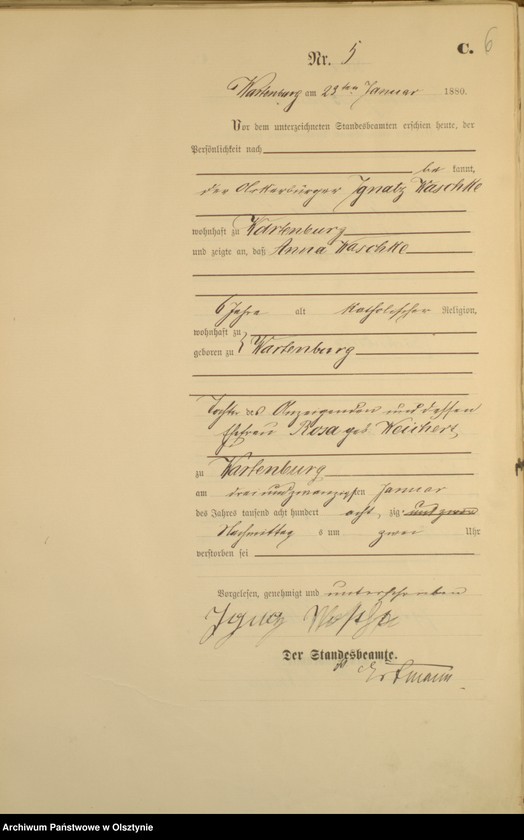 6
C.
Nr. 5
Wartenburg am 23ten Januar 1880.
Vor dem unterzeichneten Standesbeamten erschien heute, der
Persönlichkeit nach
be kannt,
der Ackerbürger Ignatz Waschke
wohnhaft zu Wartenburg
und zeigte an, daß Anna Waschke
6 Jahre alt katholischer Religion,
wohnhaft zu
geboren zu Wartenburg
Tochter des Anzeigenden und dessen
Ehefrau Rosa geb Weichert
zu Wartenburg
am drei und zwanzigsten Januar
des Jahres tausend acht hundert acht zig
Nachmittag s um zwei Uhr
verstorben sei
Vorgelesen, genehmigt und unterschrieben
Ignaz
Der Standesbeamte.